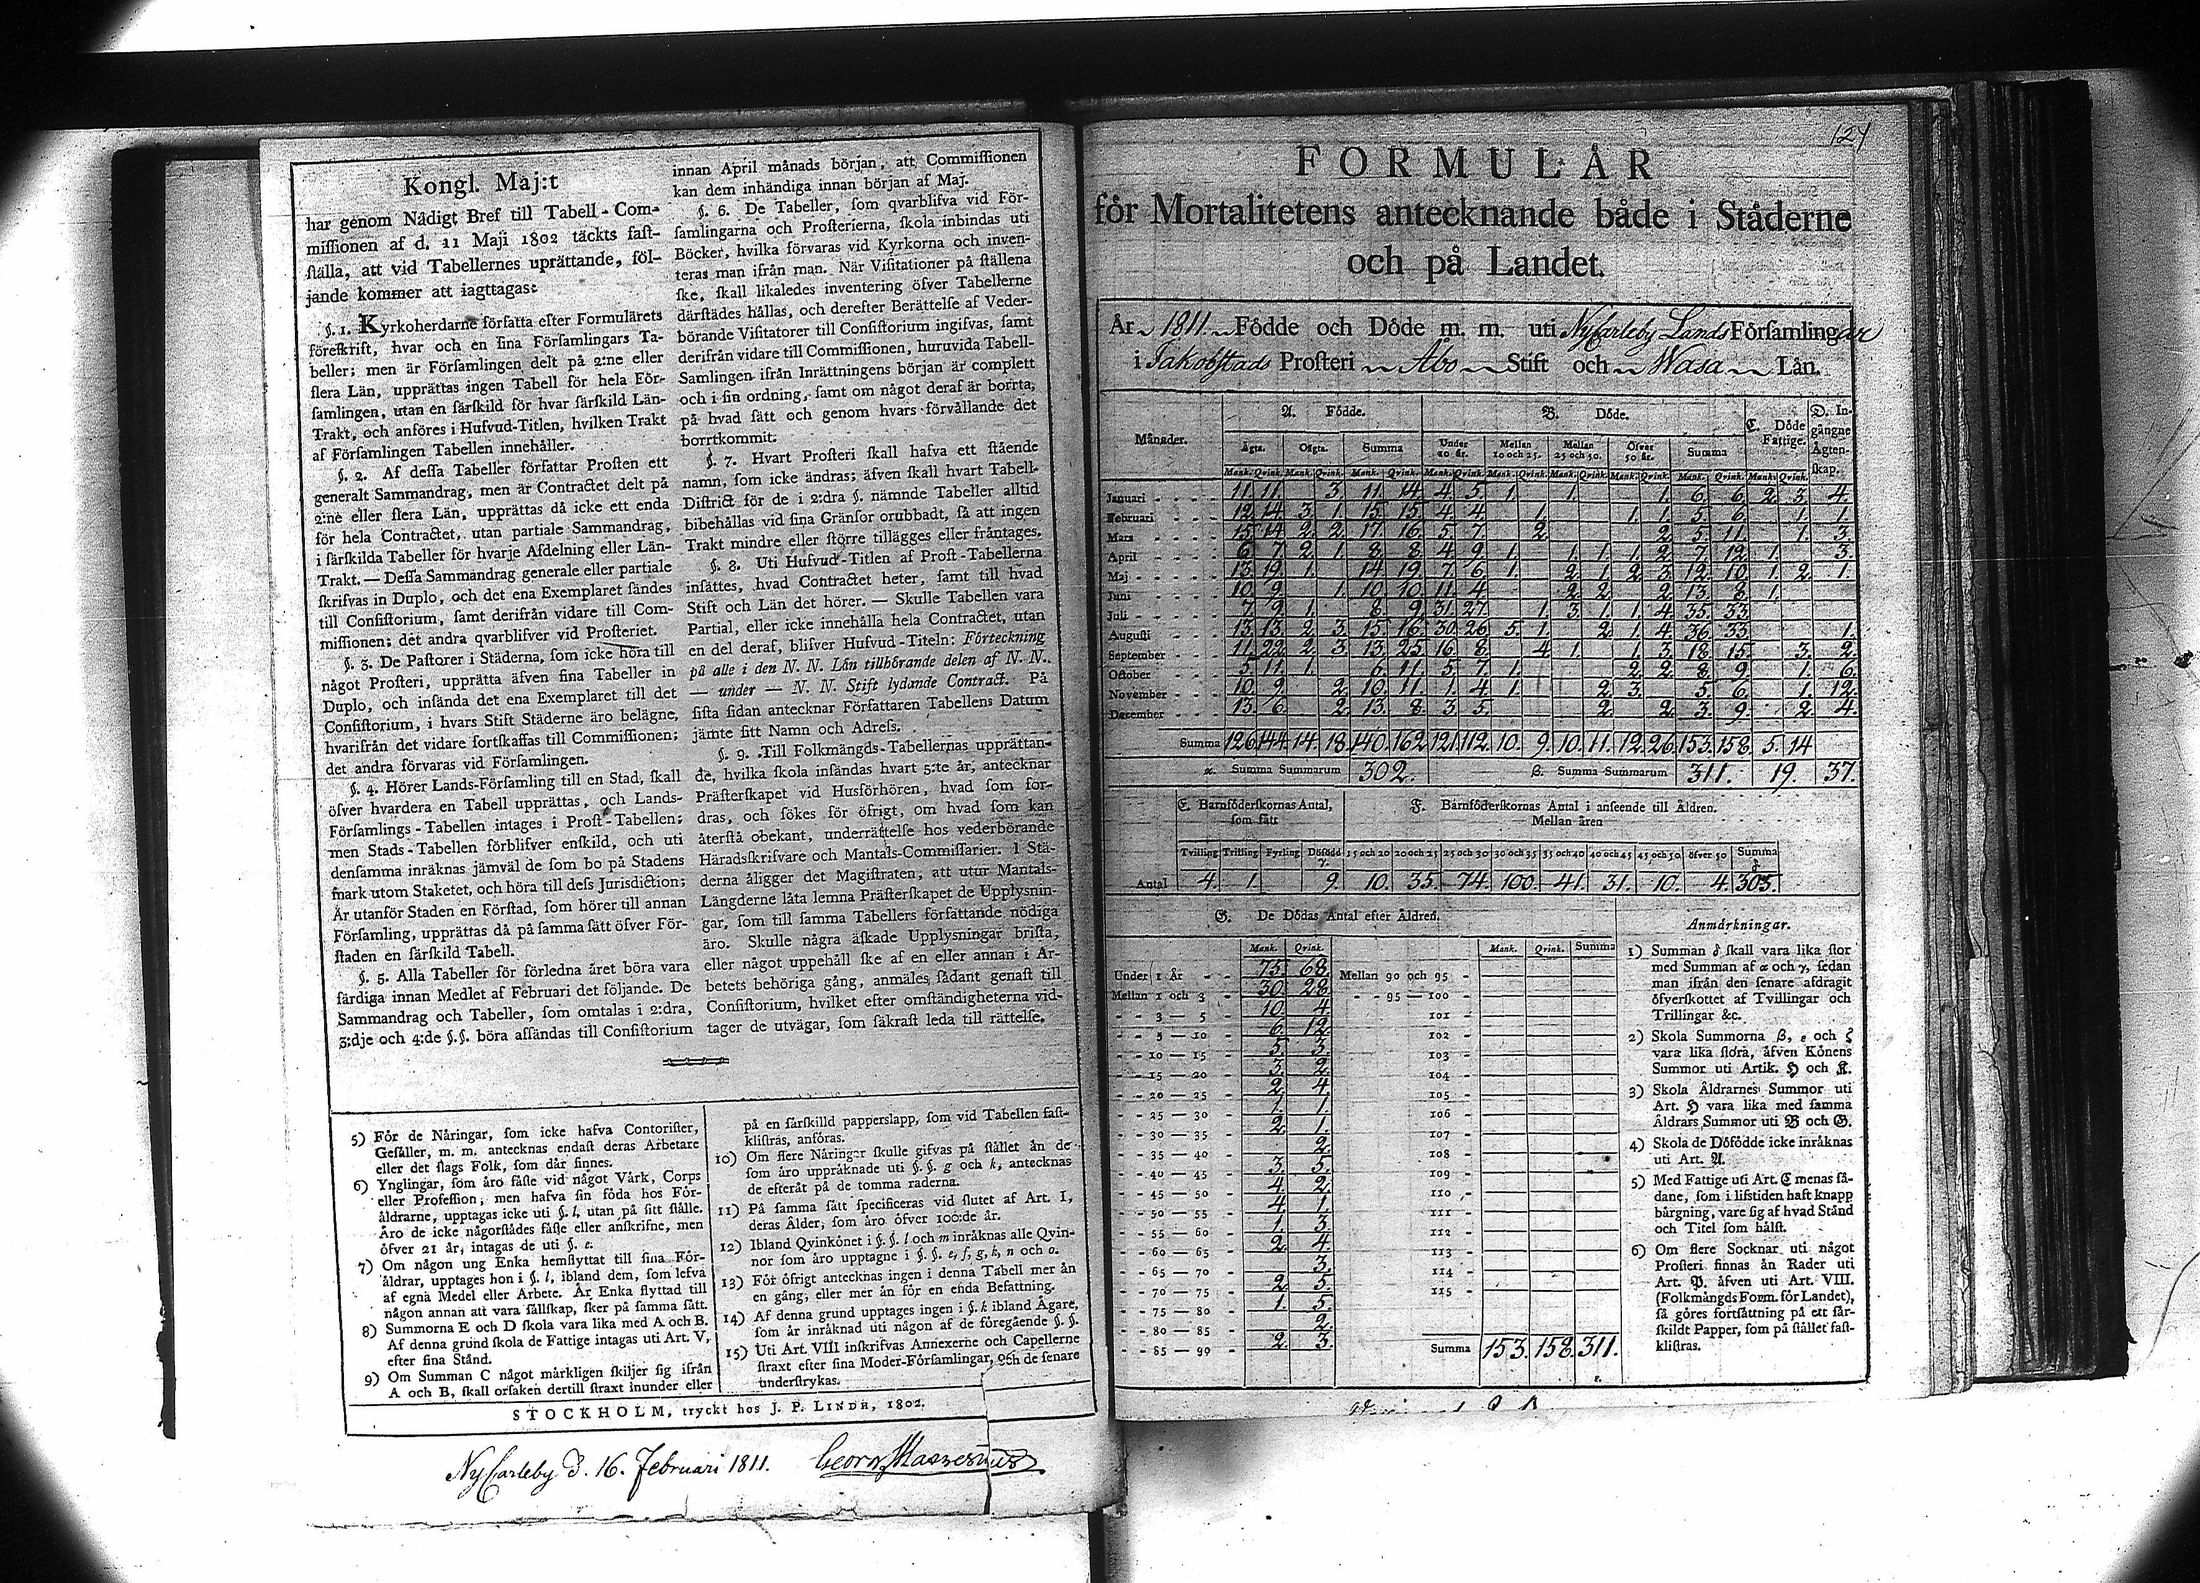 Kongl. Maj:t
har genom Nådigt Bref till Tabell-Com-
missionen af d. 11 Maji 1802 täckts fast-
ställa, att vid Tabellernes uprättande, föl-
jande kommer att iagttagas:
§. 1. Kyrkoherdarne författa efter Formulärets
föreskrift, hvar och en sina Församlingars Ta-
beller; men är Församlingen delt på 2:ne eller
flera Län, upprättas ingen Tabell för hela För-
samlingen, utan en särskild för hvar särskild Län-
Trakt, och anföres i Hufvud-Titlen, hvilken Trakt
af Församlingen Tabellen innehåller.
§. 2. Af dessa Tabeller författar Prosten ett
generalt Sammandrag, men är Contractet delt på
2:ne eller flera Län, upprättas då icke ett enda
för hela Contractet, utan partiale Sammandrag,
i särskilda Tabeller för hvarje Afdelning eller Län-
Trakt. — Dessa Sammandrag generale eller partiale
skrifvas in Duplo, och det ena Exemplaret sändes
till Consistorium, samt derifrån vidare till Com-
missionen; det andra qvarblifver vid Prosteriet.
§. 3. De Pastorer i Städerna, som icke höra till
något Prosteri, upprätta äfven sina Tabeller in
Duplo, och insända det ena Exemplaret till det
Consistorium, i hvars Stift Städerne äro belägne,
hvarifrån det vidare fortskaffas till Commissionen;
det andra förvaras vid Församlingen.
§. 4. Hörer Lands-Församling till en Stad, skall
öfver hvardera en Tabell upprättas, och Lands-
Församlings-Tabellen intages i Prost-Tabellen;
men Stads-Tabellen förblifver enskild, och uti
densamma inräknas jämväl de som bo på Stadens
mark utom Staketet, och höra till dess Jurisdiction;
Är utanför Staden en Förstad, som hörer till annan
Församling, upprättas då på samma sätt öfver För-
staden en särskild Tabell.
§. 5. Alla Tabeller för förledna året böra vara
färdiga innan Medlet af Februari det följande. De
Sammandrag och Tabeller, som omtalas i 2:dra,
3:dje och 4:de §.§. böra afsändas till Consistorium
innan April månads början, att Commissionen
kan dem inhändiga innan början af Maj.
§. 6. De Tabeller, som qvarblifva vid För-
samlingarna och Prosterierna, skola inbindas uti
Böcker, hvilka förvaras vid Kyrkorna och inven-
teras man ifrån man. När Visitationer på ställena
ske, skall likaledes inventering öfver Tabellerne
därstädes hållas, och derefter Berättelse af Veder-
börande Visitatorer till Consistorium ingifvas, samt
derifrån vidare till Commissionen, huruvida Tabell-
Samlingen ifrån Inrättningens början är complett
och i sin ordning, samt om något deraf är borrta,
på hvad sätt och genom hvars förvållande det
borrtkommit.
§. 7. Hvart Prosteri skall hafva ett stående
namn, som icke ändras; äfven skall hvart Tabell-
District för de i 2:dra §. nämnde Tabeller alltid
bibehållas vid sina Gränsor orubbadt, så att ingen
Trakt mindre eller större tillägges eller fråntages.
§. 8. Uti Hufvud-Titlen af Prost-Tabellerna
insättes, hvad Contractet heter, samt till hvad
Stift och Län det hörer. — Skulle Tabellen vara
Partial, eller icke innehålla hela Contractet, utan
en del deraf, blifver Hufvud-Titeln: Förteckning
på alle i den N. N. Län tillhörande delen af N. N.
— under — N. N. Stift lydande Contract. På
sista sidan antecknar Författaren Tabellens Datum
jämte sitt Namn och Adress.
§. 9. Till Folkmängds-Tabellernas upprättan-
de, hvilka skola insändas hvart 5:te år, antecknar
Prästerskapet vid Husförhören, hvad som for-
dras, och sökes för öfrigt, om hvad som kan
återstå obekant, underrättelse hos vederbörande
Häradsskrifvare och Mantals-Commissarier. I Stä-
derna åligger det Magistraten, att utur Mantals-
Längderne låta lemna Prästerskapet de Upplysnin-
gar, som till samma Tabellers författande nödiga
äro. Skulle några äskade Upplysningar brista,
eller något uppehåll ske af en eller annan i Ar-
betets behöriga gång, anmäles sådant genast till
Consistorium, hvilket efter omständigheterna vid-
tager de utvägar, som säkrast leda till rättelse.
5) För de Näringar, som icke hafva Contorister,
Gesäller, m. m. antecknas endast deras Arbetare
eller det slags Folk, som där finnes.
6) Ynglingar, som äro fäste vid något Värk, Corps
eller Profession, men hafva sin föda hos För-
äldrarne, upptagas icke uti §. l, utan på sitt ställe.
Äro de icke någorstädes fäste eller anskrifne, men
öfver 21 år, intagas de uti §. e.
7) Om någon ung Enka hemflyttat till sina För-
äldrar, upptages hon i §. l, ibland dem, som lefva
af egna Medel eller Arbete. Är Enka flyttad till
någon annan att vara sällskap, sker på samma sätt.
8) Summorna E och D skola vara lika med A och B.
Af denna grund skola de Fattige intagas uti Art. V,
efter sina Stånd.
9) Om Summan C något märkligen skiljer sig ifrån
A och B, skall orsaken dertill straxt inunder eller
på en särskilld papperslapp, som vid Tabellen fast-
klistras, anföras.
10) Om flere Näringar skulle gifvas på stället än de
som äro uppräknade uti §. §. g och k, antecknas
de efteråt på de tomma raderna.
11) På samma sätt specificeras vid slutet af Art. I,
deras Ålder, som äro öfver 100:de år.
12) Ibland Qvinkönet i §. §. l och m inräknas alle Qvin-
nor som äro upptagne i §. §. e, f, g, k, n och o.
13) För öfrigt antecknas ingen i denna Tabell mer än
en gång, eller mer än för en enda Befattning.
14) Af denna grund upptages ingen i §. k ibland Ägare,
som är inräknad uti någon af de föregående §. §.
15) Uti Art. VIII inskrifvas Annexerne och Capellerne
straxt efter sina Moder-Församlingar, och de senare
understrykas.
STOCKHOLM, tryckt hos J. P. LINDH, 1802.
NyCarleby d. 16. Februari 1811.
FORMULÄR
för Mortalitetens antecknande både i Städerne
och på Landet.
År 1811. Födde och Döde m. m. uti NyCarleby Lands Församlingar
i Jakobstads Prosteri Åbo Stift och Wasa Län.
Månader. A. Födde. B. Döde. C. Döde Fattige. D. Ingångne Ägtenskap.
Ägta. Oägta. Summa Under 10 år. Mellan 10 och 25. Mellan 25 och 50. Öfver 50 år. Summa
Mank. Qvink. Mank. Qvink. Mank. Qvink. Mank. Qvink. Mank. Qvink. Mank. Qvink. Mank. Qvink. Mank. Qvink. Mank. Qvink.
Januari 11. 11. 3. 11. 14. 4. 5. 1. 1. 1. 6. 6. 2. 3. 4.
Februari 12. 14. 3. 1. 15. 15. 4. 4. 1. 1. 1. 5. 6. 1. 1.
Mars 15. 14. 2. 2. 17. 16. 5. 7. 2. 2. 5. 11. 1. 3.
April 6. 7. 2. 1. 8. 8. 4. 9. 1. 1. 1. 1. 2. 7. 12. 1. 3.
Maj 13. 19. 1. 14. 19. 7. 6. 1. 2. 1. 2. 3. 12. 10. 1. 2. 1.
Juni 10. 9. 1. 10. 10. 11. 4. 2. 2. 2. 13. 8. 1.
Juli 7. 9. 1. 8. 9. 31. 27. 1. 3. 1. 1. 4. 35. 33.
Augusti 13. 13. 2. 3. 15. 16. 30. 26. 5. 1. 2. 1. 4. 36. 33. 1.
September 11. 22. 2. 3. 13. 25. 16. 8. 4. 1. 1. 3. 18. 15. 3. 2.
October 5. 11. 1. 6. 11. 5. 7. 1. 2. 2. 8. 9. 1. 6.
November 10. 9. 2. 10. 11. 1. 4. 1. 2. 3. 5. 6. 1. 12.
December 13. 6. 2. 13. 8. 3. 5. 2. 2. 3. 9. 2. 4.
Summa 126. 144. 14. 18. 140. 162. 121. 112. 10. 9. 10. 11. 12. 26. 153. 158. 5. 14
α. Summa Summarum 302. β. Summa Summarum 311. 19. 37.
E. Barnföderskornas Antal, som fått
F. Barnföderskornas Antal i anseende till Åldren.
Mellan åren
Tvilling Trilling Fyrling Dödfödd γ. 15 och 20 20 och 25 25 och 30 30 och 35 35 och 40 40 och 45 45 och 50 öfver 50 Summa δ
Antal 4. 1. 9. 10. 35. 74. 100. 41. 31. 10. 4. 305.
G. De Dödas Antal efter Åldren.
Mank. Qvink. Mank. Qvink. Summa
Under 1 År 75. 68. Mellan 90 och 95
Mellan 1 och 3 30. 28. 95 — 100
3 — 5 10. 4. 101
5 — 10 6. 12. 102
10 — 15 5. 3. 103
15 — 20 3. 2. 104
20 — 25 2. 4. 105
25 — 30 1. 1. 106
30 — 35 2. 1. 107
35 — 40 2. 108
40 — 45 3. 5. 109
45 — 50 4. 2. 110
50 — 55 4. 1. 111
55 — 60 1. 3. 112
60 — 65 2. 4. 113
65 — 70 3. 114
70 — 75 2. 5. 115
75 — 80 1. 5.
80 — 85 2.
85 — 90 2. 3. Summa 153. 158. 311.
Anmärkningar.
1) Summan δ skall vara lika stor
med Summan af α och γ, sedan
man ifrån den senare afdragit
öfverskottet af Tvillingar och
Trillingar &c.
2) Skola Summorna β, ε och ζ
vara lika stora, äfven Könens
Summor uti Artik. H och K.
3) Skola Åldrarnes Summor uti
Art. H vara lika med samma
Åldrars Summor uti B och G.
4) Skola de Döfödde icke inräknas
uti Art. A.
5) Med Fattige uti Art. C menas så-
dane, som i lifstiden haft knapp
bärgning, vare sig af hvad Stånd
och Titel som hälst.
6) Om flere Socknar uti något
Prosteri finnas än Rader uti
Art. P. äfven uti Art. VIII.
(Folkmängds Form. för Landet),
så göres fortsättning på ett sär-
skildt Papper, som på stället fast-
klistras.